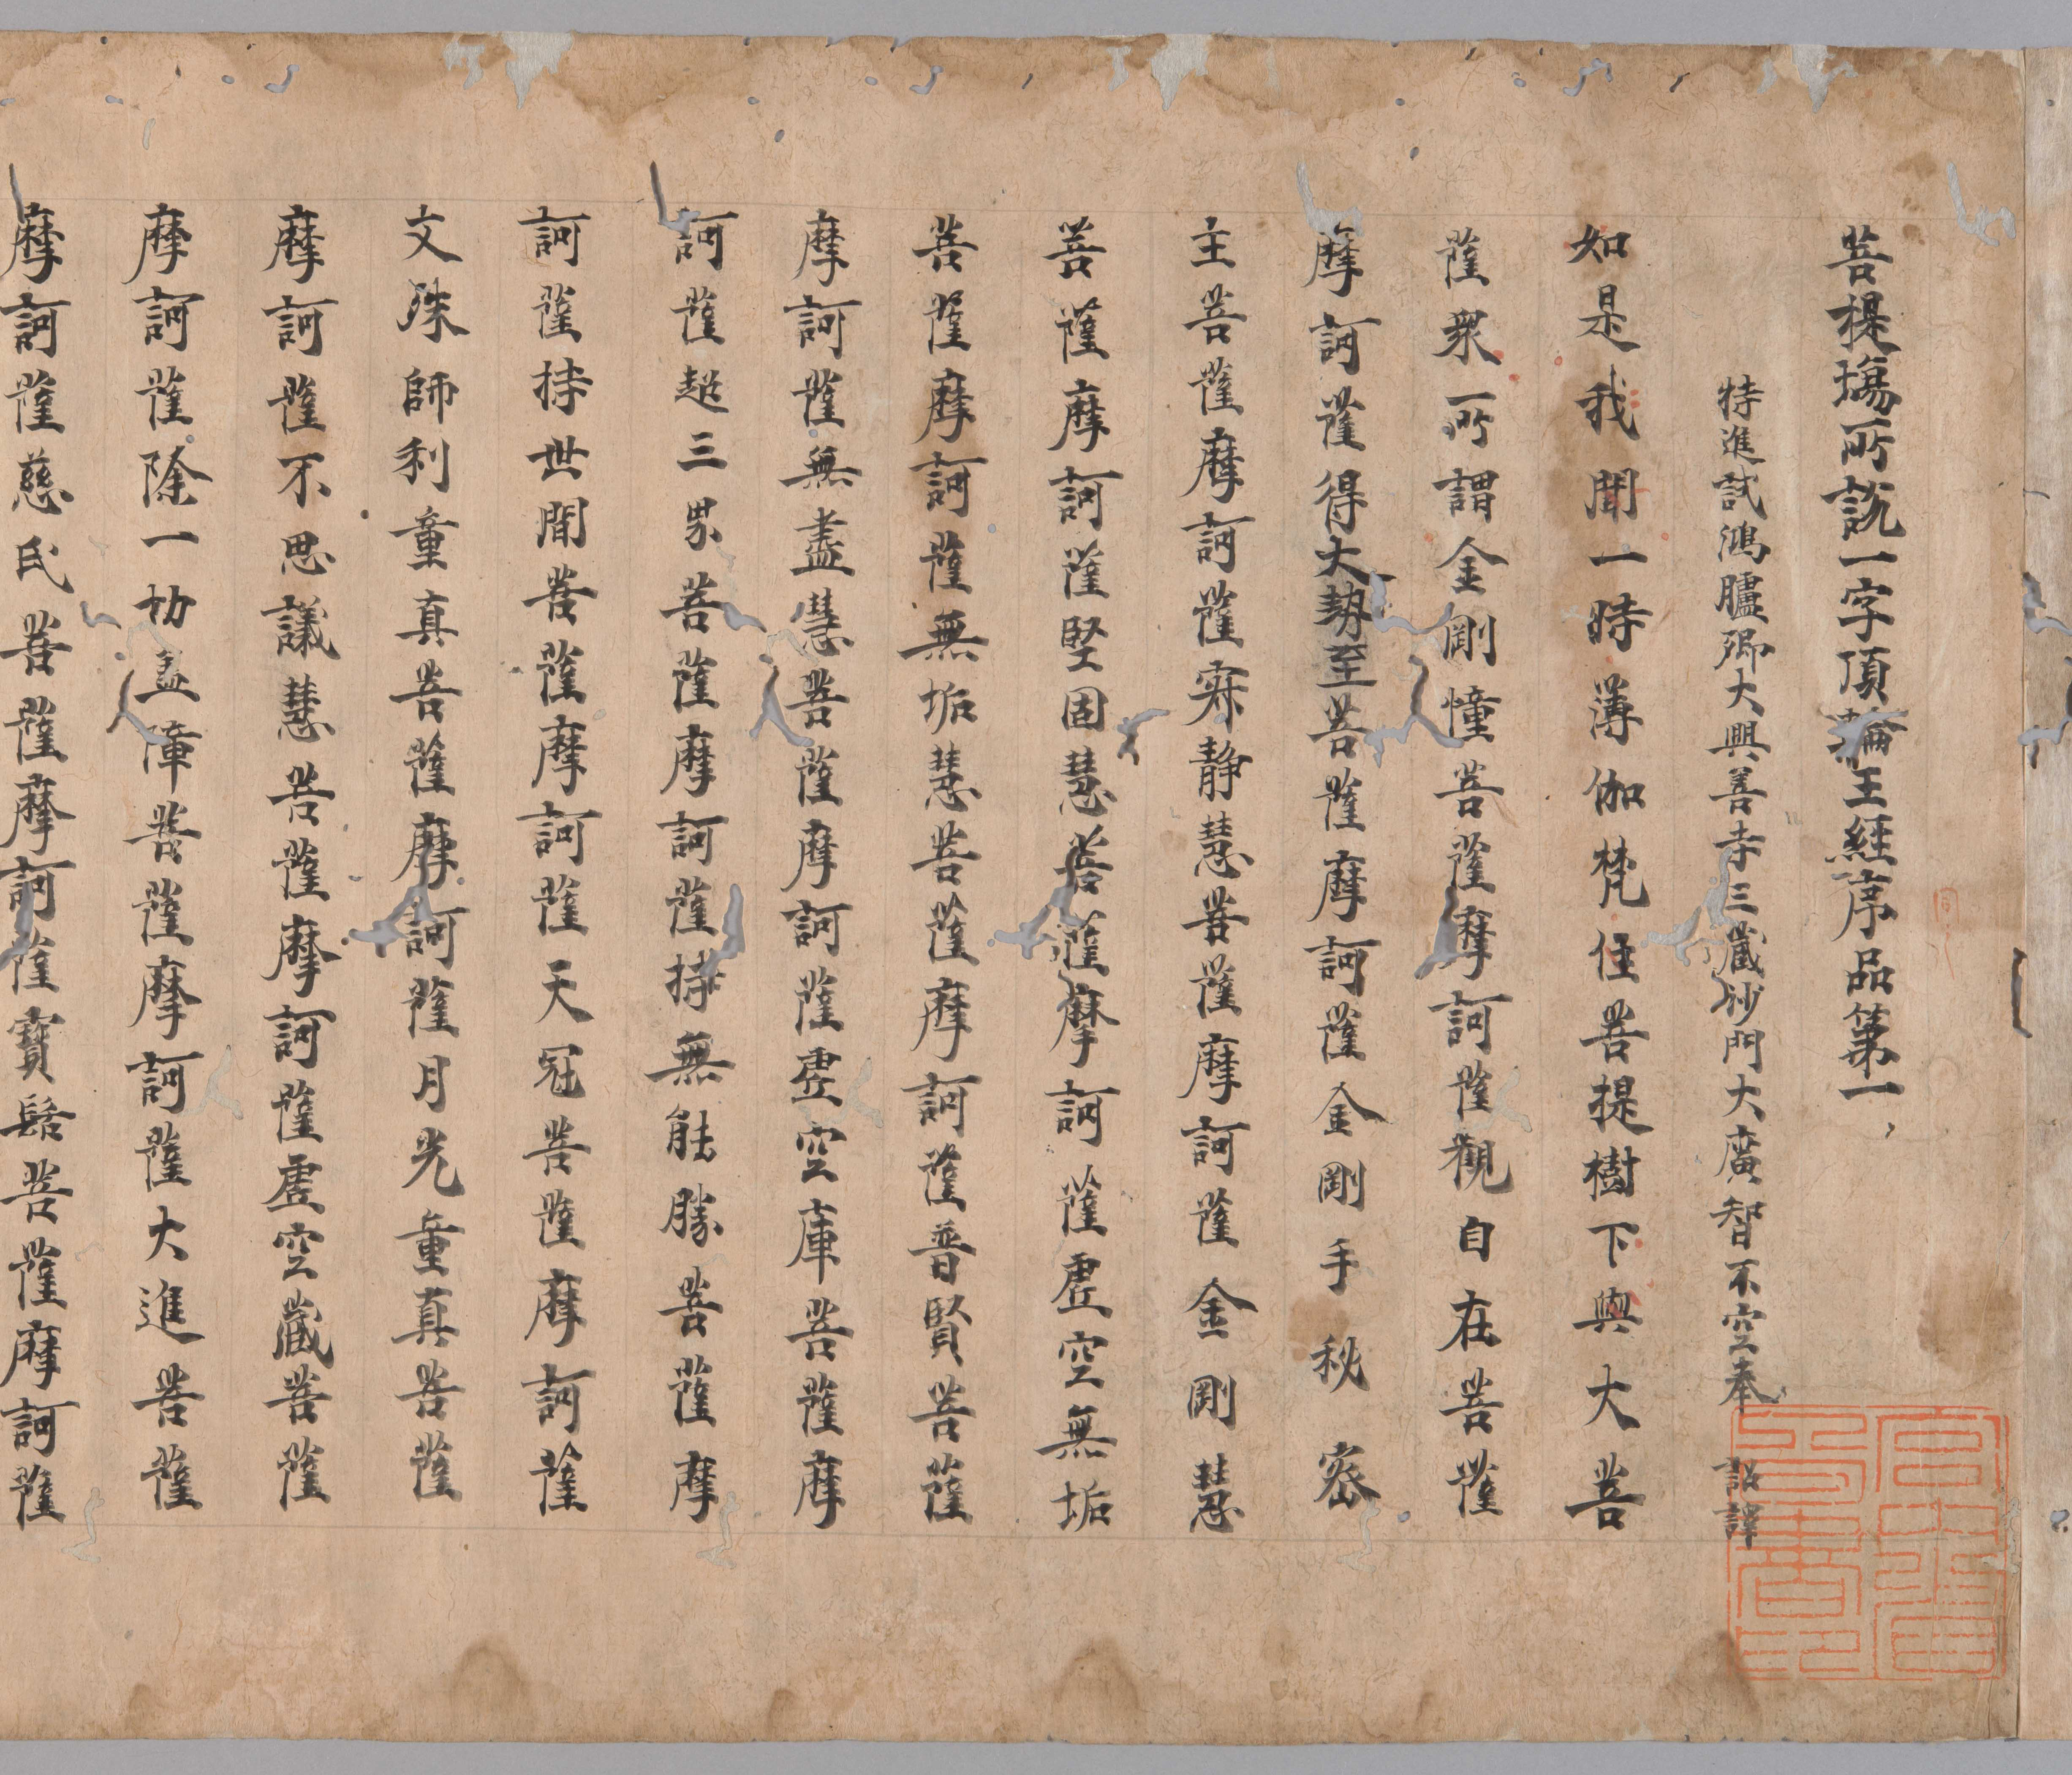 菩提塲所説一字頂輪王經序品第一
特進試鴻臚卿大興善寺三藏沙門大廣智不空奉 詔譯
如是我聞一時薄伽梵住菩提樹下與大菩
薩衆所謂金剛幢菩薩摩訶薩觀自在菩薩
摩訶薩得大勢至菩薩摩訶薩金剛手秘密
主菩薩摩訶薩寂静慧菩薩摩訶薩金剛慧
菩薩摩訶薩堅固慧菩薩摩訶薩虚空無垢
菩薩摩訶薩無垢慧菩薩摩訶薩普賢菩薩
摩訶薩無盡慧菩薩摩訶薩虚空庫菩薩摩
訶薩超三界菩薩摩訶薩持無能勝菩薩摩
訶薩持世間菩薩摩訶薩天冠菩薩摩訶薩
文殊師利童真菩薩摩訶薩月光童真菩薩
摩訶薩不思議慧菩薩摩訶薩虚空藏菩薩
摩訶薩除一切盖障菩薩摩訶薩大進菩薩
摩訶薩慈氏菩薩摩訶薩寶髻菩薩摩訶薩